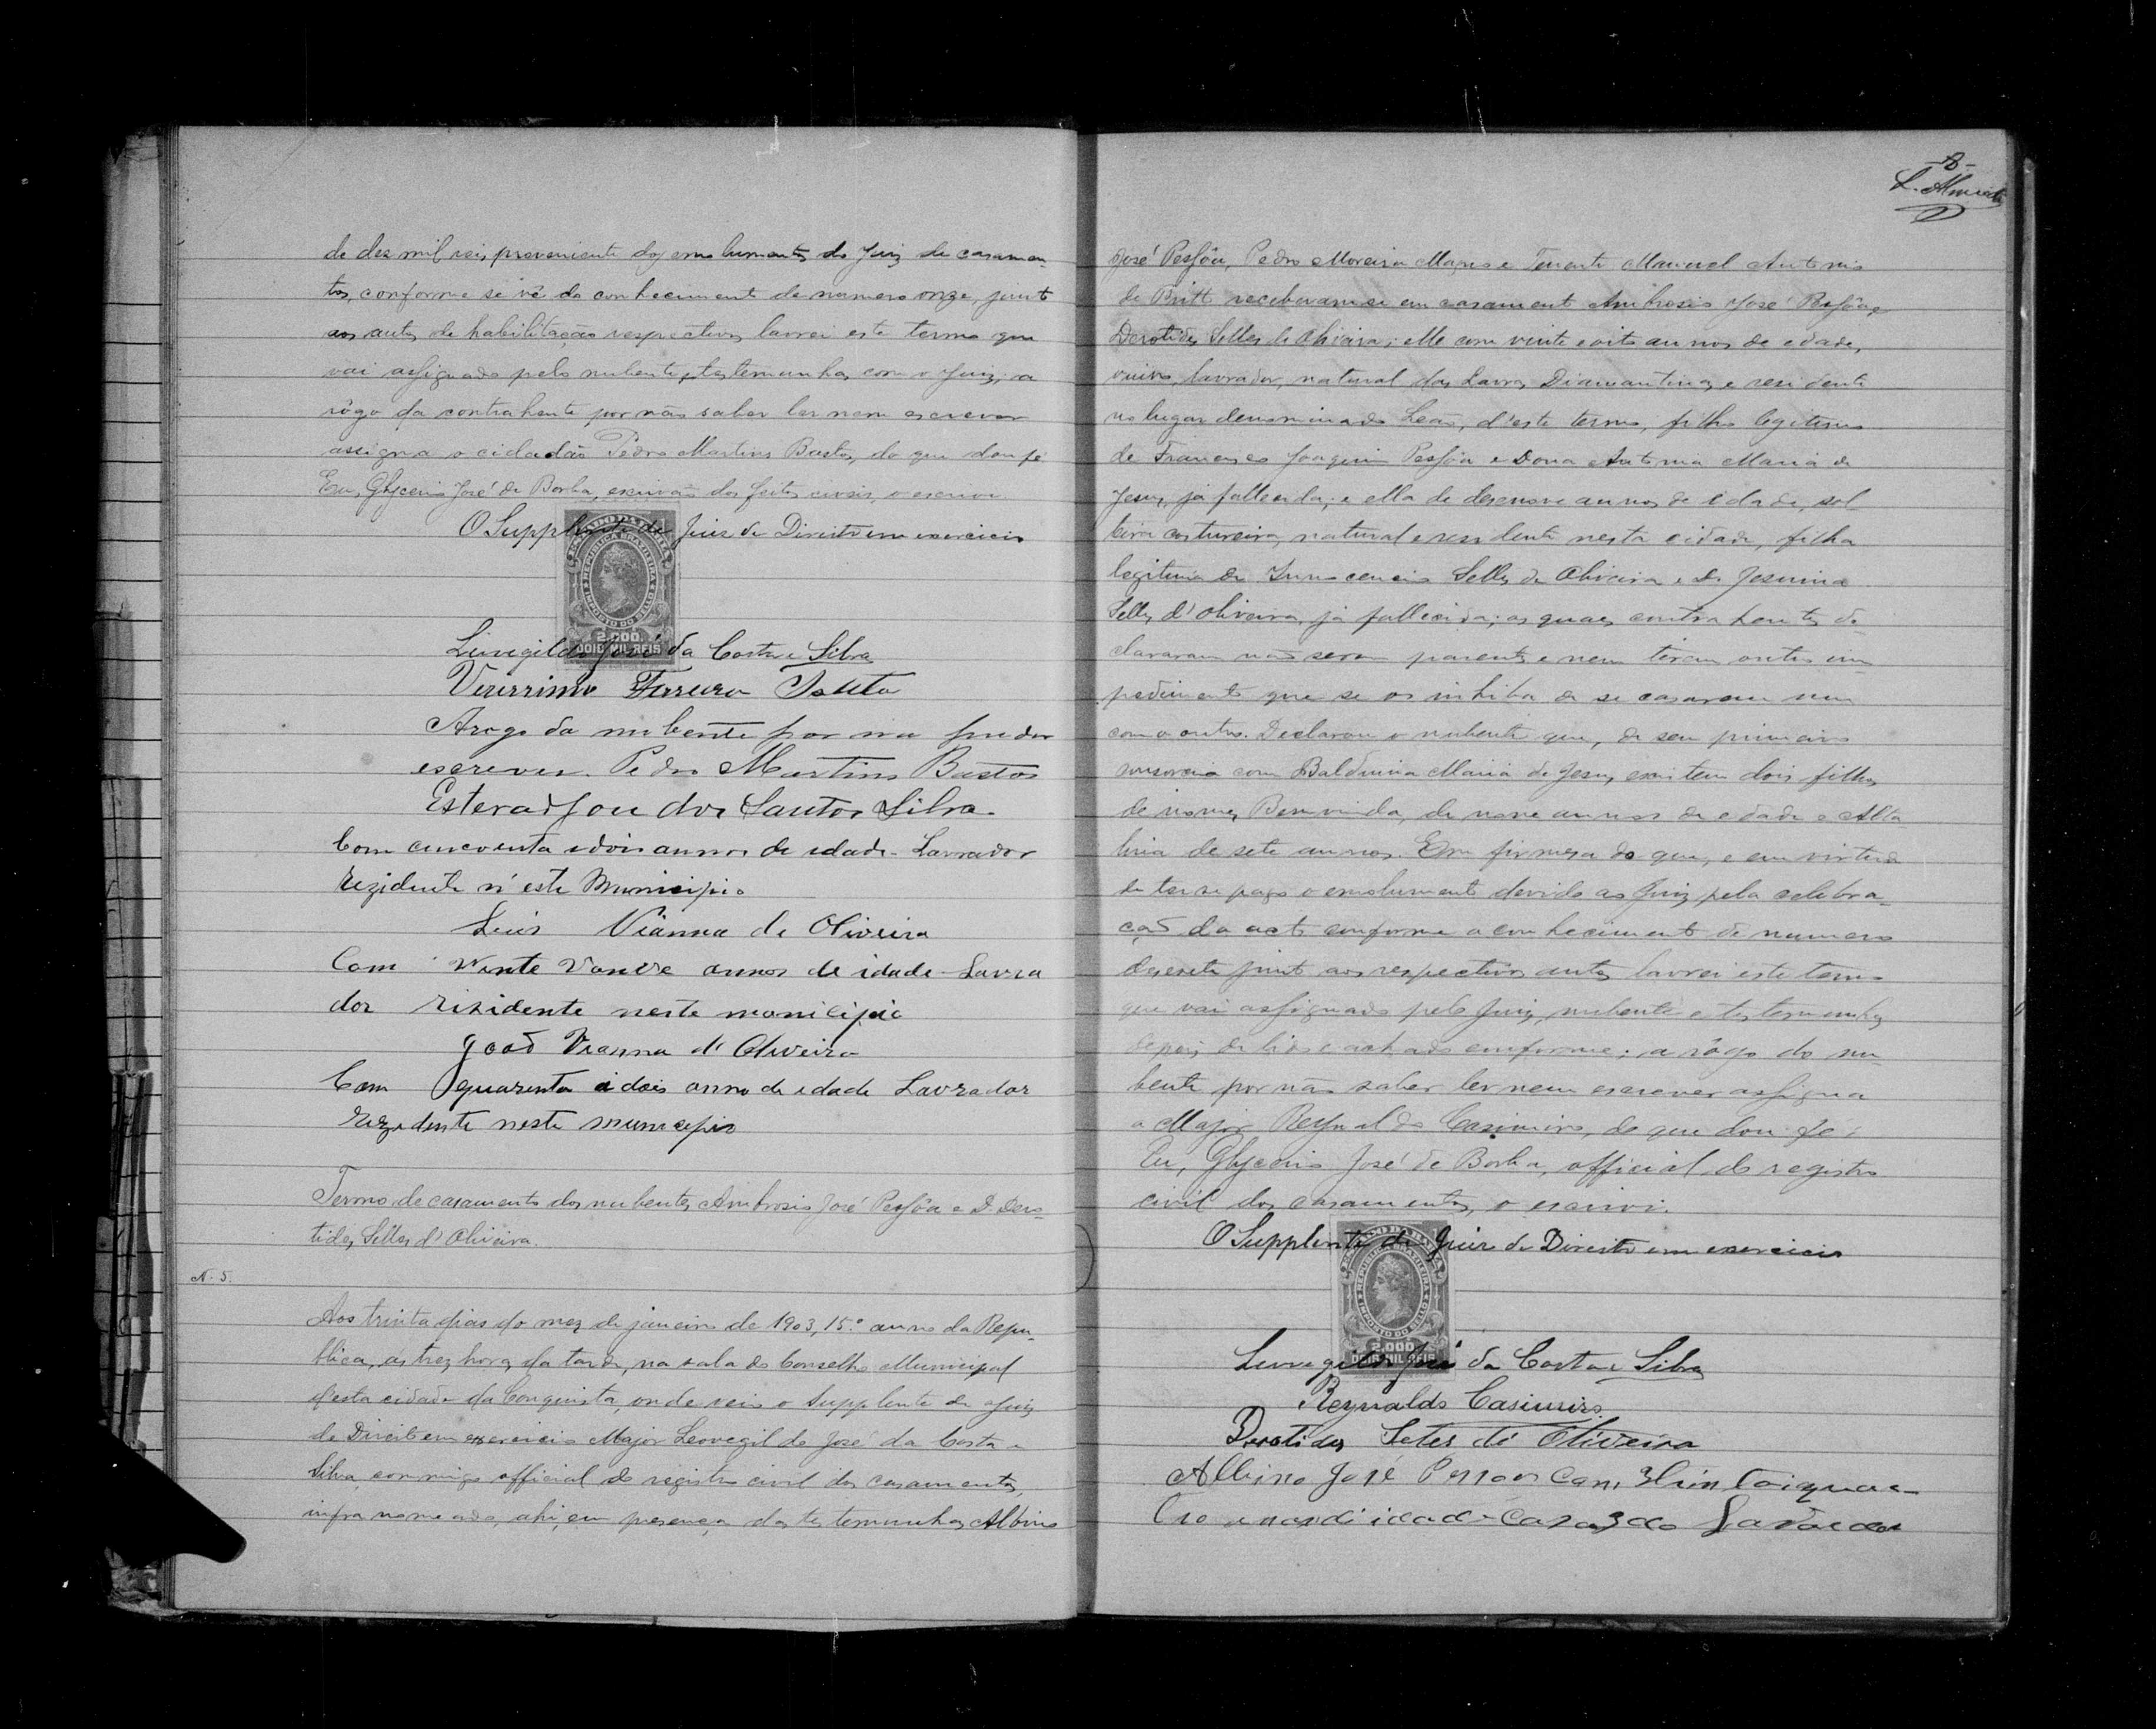 de dez mil reis, proveniente dos emolumentos do Juiz de casamen-
tos, conforme se vê do conhecimento de numero onze, junto
aos autos de habilitação respectivos, lavrei este termo que
vai assignado pelo nubente, testemunhas com o Juiz; a
rôgo da contrahente por não saber ler nem escrever
assigna o cidadão Pedro Martins Bastos, do que dou fé
Eu, Glycerio José de Borba, escrivão dos feitos civeis, o escrevi
O Supplente do Juiz de Direito em exercicio
ESTADO DA BAHIA
REPUBLICA BRAZILEIRA
IMPOSTO DO SELLO
2.000
DOIS MIL REIS
Leovegildo José da Costa e Silva
Verissimo Ferreira
Arogo da nubente por não
escrever. Pedro Martins Bastos
dos Santos Silva
Com cincoenta e dois annos de idade Lavrador
rezidente n'este Municipio
Luis Vianna de Oliveira
Com Vinte annos de idade Lavra
dor rizidente neste monicipio
João Vianna d'Oliveira
Com quarenta i dois anno de idade Lavrador
rezidente neste municipio
Termo de casamento dos nubentes Ambrosio José Pessôa e D. Dero-
tides Selles d'Oliveira.
N. 5.
Aos trinta dias do mez de janeiro de 1903, 15.º anno da Repu-
blica, as trez horas da tarde, na sala do Conselho Municipal
d'esta cidade da Conquista, onde veio o Supplente de Juiz
de Direito em exercicio Major Leovegildo José da Costa e
Silva, commigo official do registro civil dos casamentos,
infra nomeado, ahi, em presença das testemunhas Albino
-8-
L. Almeida
José Pessôa, Pedro Moreira Magno e Tenente Manoel Antonio
de Britto receberam-se em casamento Ambrosio José Pessôa e
Derotides Selles de Oliveira; elle com vinte e oito annos de edade,
viuvo, lavrador, natural das Lavras Diamantinas e residente
no lugar denominado Leão, d'este termo, filho legitimo
de Francisco Joaquim Pessôa e Dona Antonia Maria de
Jesus, já fallecida; e ella de desenove annos de idade, sol
teira costureira, natural e residente nesta cidade, filha
legitima de Innocencio Selles de Oliveira e D. Jesuina
Selles d'Oliveira, já fallecida; os quaes contrahentes de-
clararam não serem parentes e nem terem outro im-
pedimento que se os inhiba de se casarem um
com o outro. Declarou o nubente que, de seu primeiro
consorcio com Balduina Maria de Jesus, existem dois filhos
de nomes Bemvinda, de nove annos de edade e
de sete annos. Em firmeza do que, e em virtude
de ter-se pago o emolumento devido ao Juiz pela celebra-
ção do acto conforme o conhecimento de numero
desesete junto aos respectivos autos lavrei este termo
que vai assignado pelo Juiz, nubente e testemunhas
depois de lido e achado conforme; a rôgo do nu-
bente por não saber ler nem escrever assigna
o Major Reynaldo Casimiro, do que dou fé.
Eu, Glycerio José de Borba, official do registro
civil dos casamentos, o escrevi.
O Supplente do Juiz de Direito em exercicio
ESTADO DA BAHIA
REPUBLICA BRAZILEIRA
IMPOSTO DO SELLO
2.000
DOIS MIL REIS
Leovegildo José da Costa e Silva
Reynaldo Casimiro
Derotides Seles de Oliveira
Albino José Pessoa Com
Casado